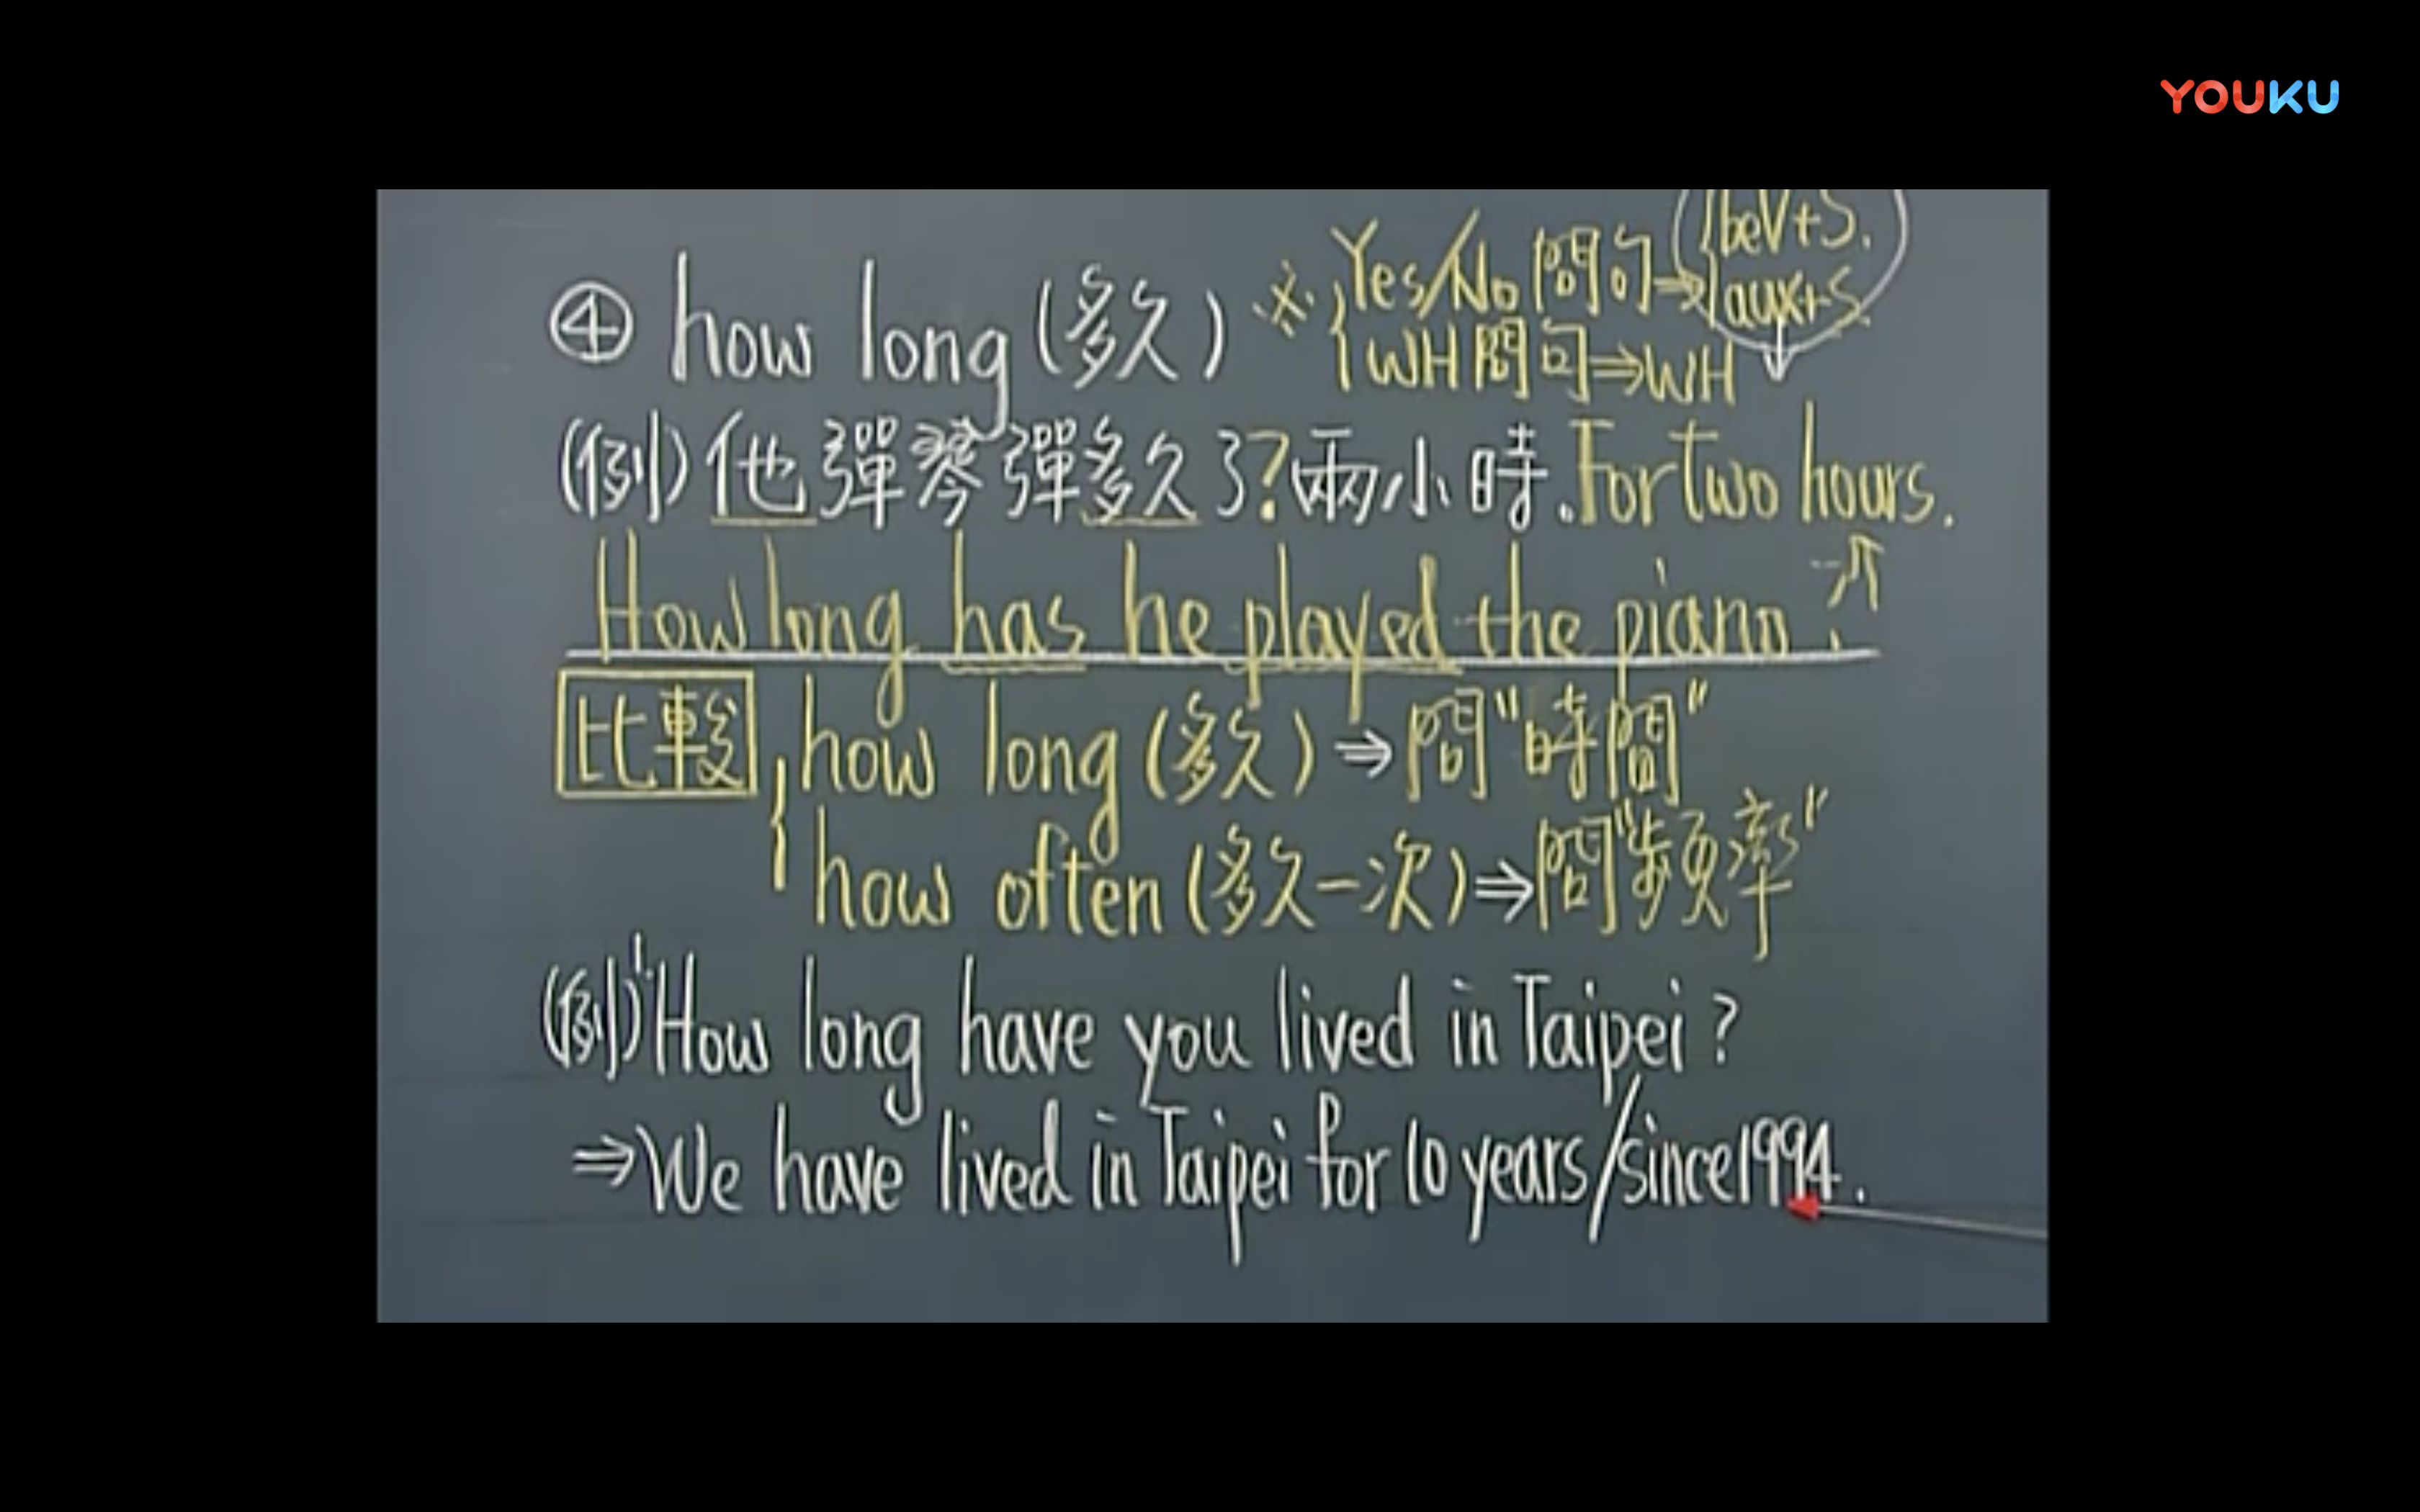 YOUKU
④ how long (多久) ※ { Yes/No 問句 ⇒ { beV+S.
aux+S.
WH 問句 ⇒ WH ↓
(例) 他彈琴彈多久了? 兩小時. For two hours.
How long has he played the piano ?
比較 { how long (多久) ⇒ 問"時間"
how often (多久一次) ⇒ 問"頻率"
(例) 1. How long have you lived in Taipei ?
⇒ We have lived in Taipei for 10 years/since 1994.